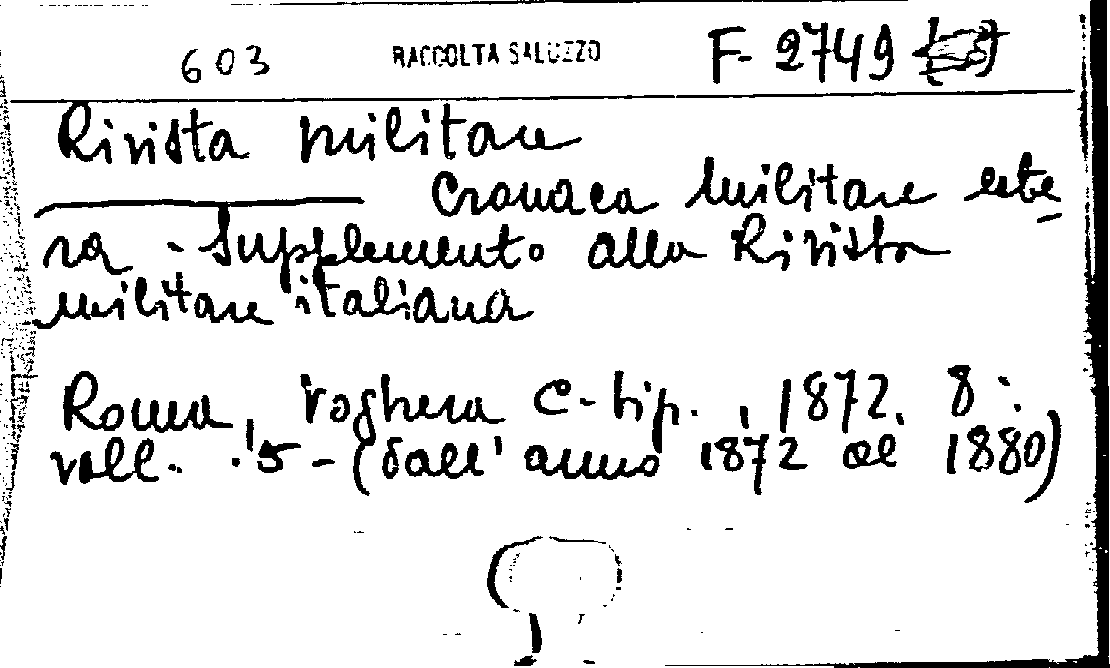 603 RACCOLTA SALUZZO F. 2749
Rivista militare
Cronaca militare este
ra - Supplemento alla Rivista
militare italiana
Roma, Voghera C. tip., 1872. 8°.
voll. 5 - (dall' anno 1872 al 1880)